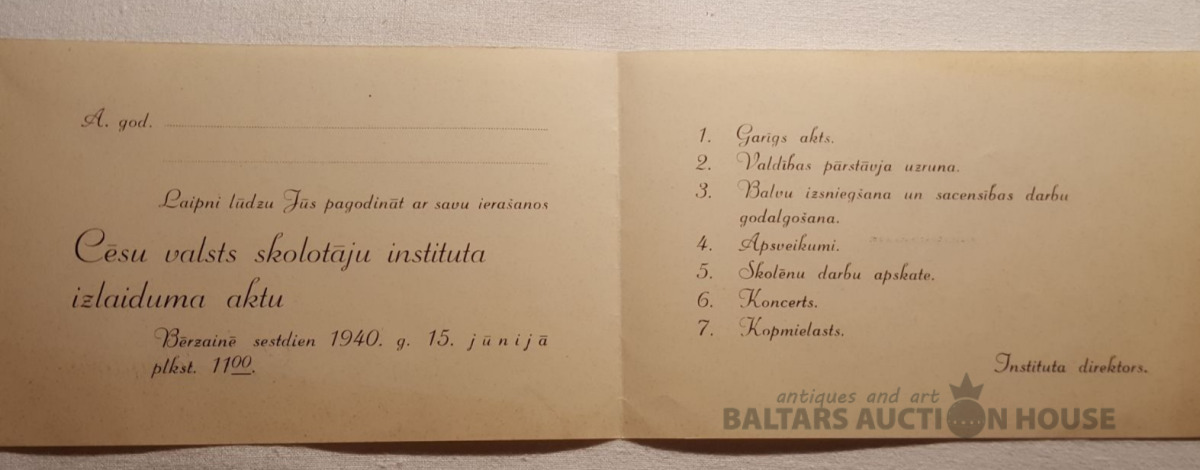 A. god.
Laipni lūdzu Jūs pagodināt ar savu ierašanos
Cēsu valsts skolotāju instituta
izlaiduma aktu
Bērzainē sestdien 1940. g. 15. jūnijā
plkst. 1100.
1. Garīgs akts.
2. Valdības pārstāvja uzruna.
3. Balvu izsniegšana un sacensības darbu
godalgošana.
4. Apsveikumi.
5. Skolēnu darbu apskate.
6. Koncerts.
7. Kopmielasts.
Instituta direktors.
antiques and art
BALTARS AUCTION HOUSE